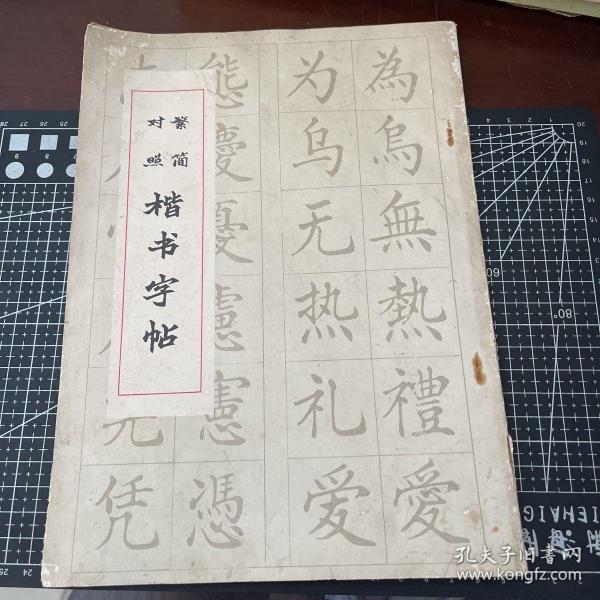 繁简
对照
楷书字帖
為 为
烏 乌
無 无
熱 热
禮 礼
愛 爱
態
慶
憂
慮
憲
憑 凭
孔夫子旧书网
www.kongfz.com